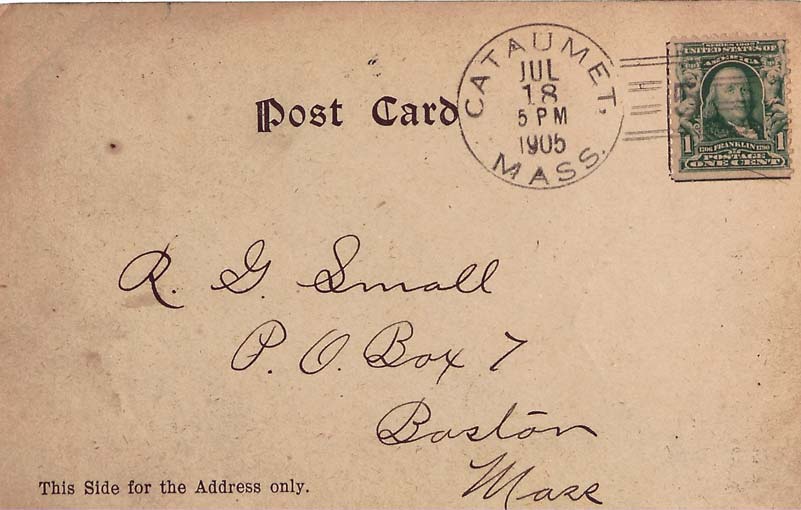 Post Card
CATAUMET,
JUL
18
5 PM
1905
MASS.
SERIES 1902
UNITED STATES OF
AMERICA
1 1
1706 FRANKLIN 1790
POSTAGE
ONE CENT
R. G. Small
P. O. Box 7
Boston
Mass
This Side for the Address only.